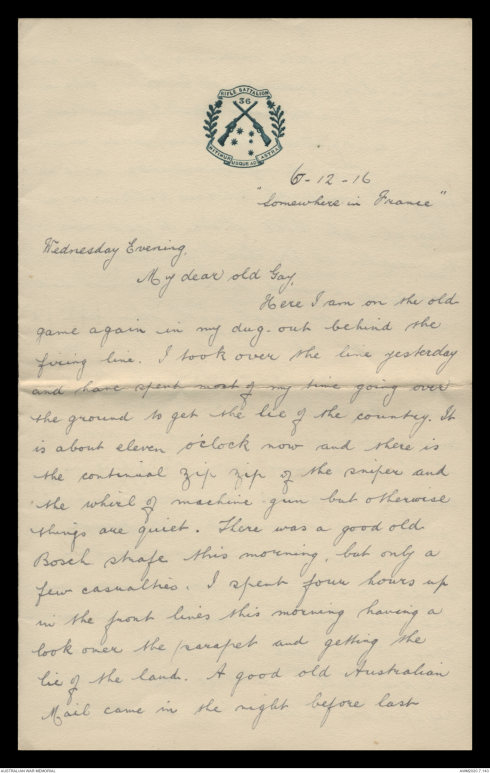 RIFLE BATTALION
36
NITIMUR USQUE AD ASTRA
6-12-16
"Somewhere in France"
Wednesday Evening,
My dear old Gay,
Here I am on the old
game again in my dug-out behind the
firing line. I took over the line yesterday
and have spent most of my time going over
the ground to get the lie of the country. It
is about eleven o'clock now and there is
the continual zip zip of the sniper and
the whirl of machine gun but otherwise
things are quiet. There was a good old
Bosch strafe this morning, but only a
few casualties. I spent four hours up
in the front lines this morning having a
look over the parapet and getting the
lie of the land. A good old Australian
Mail came in the night before last
AUSTRALIAN WAR MEMORIAL